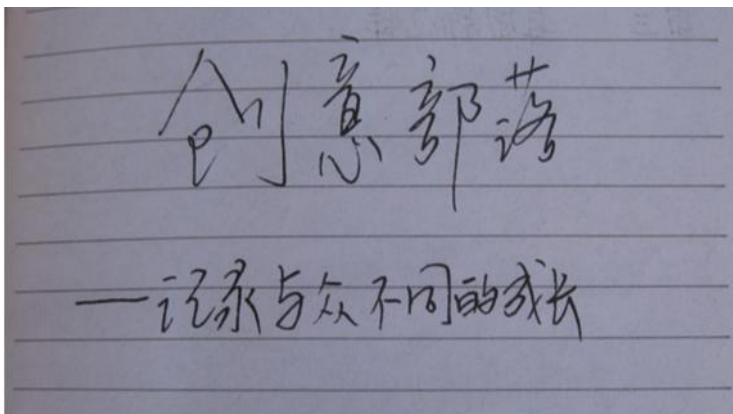 创意部落
—记录与众不同的成长